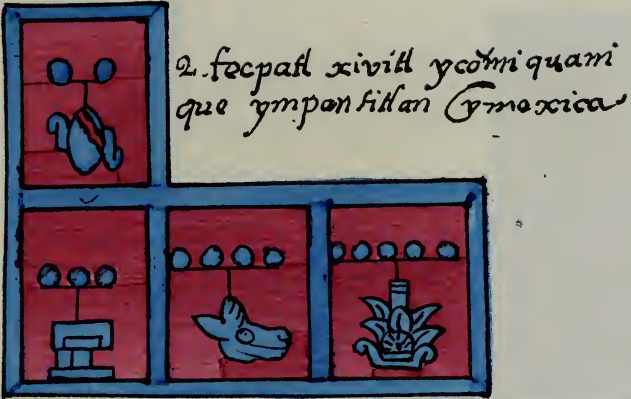 2. tecpatl xivitl ycōmiquani
que ympantitlan ymexica